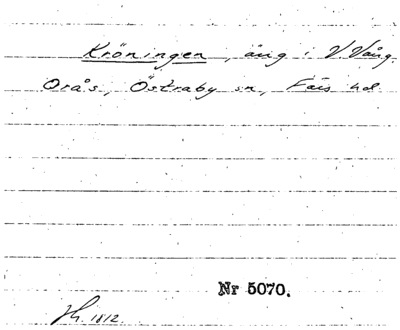 Kröningen, äng i V. Vång
Orås, Östraby sn, Färs hd
Nr 5070.
1812.